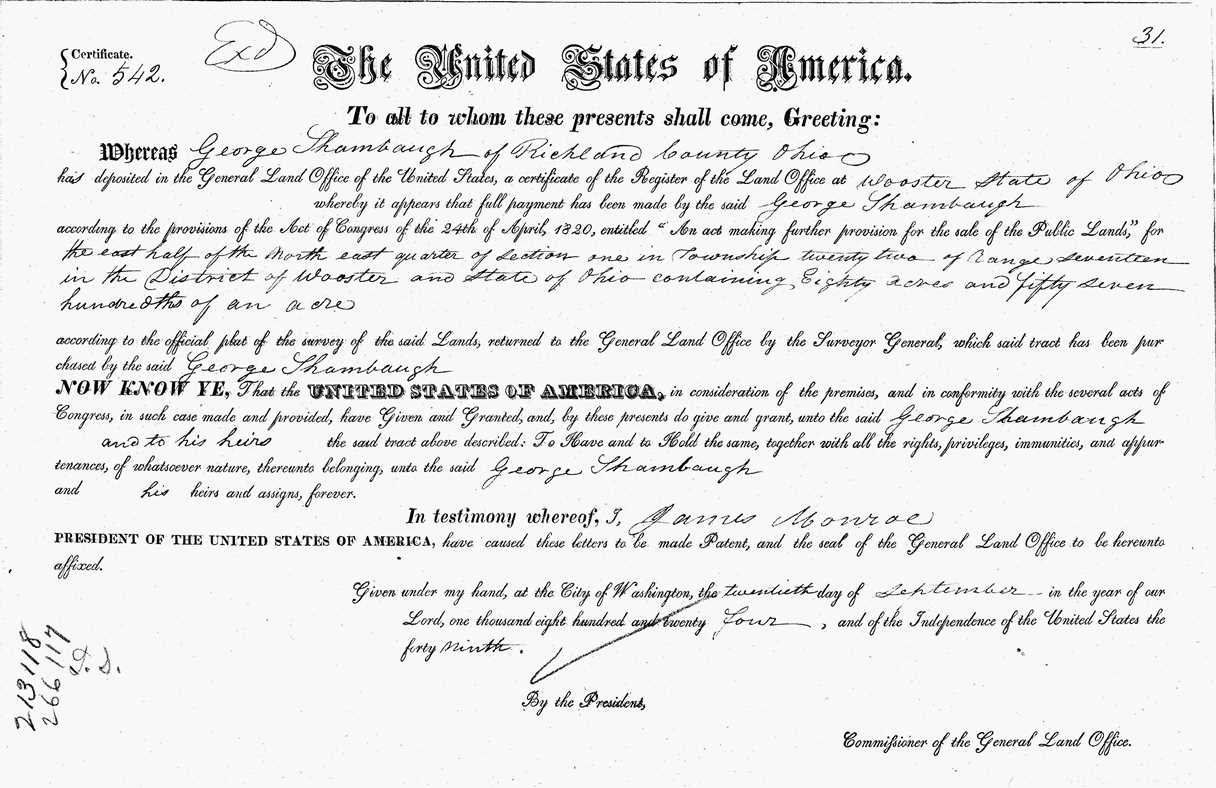 31.
Certificate.
No. 542.
Exd
The United States of America.
To all to whom these presents shall come, Greeting:
Whereas George Shambaugh of Richland County Ohio
has deposited in the General Land Office of the United States, a certificate of the Register of the Land Office at Wooster State of Ohio
whereby it appears that full payment has been made by the said George Shambaugh
according to the provisions of the Act of Congress of the 24th of April, 1820, entitled “An act making further provision for the sale of the Public Lands,” for
the east half of the North east quarter of section one in Township twenty two of range seventeen
in the District of Wooster and State of Ohio containing Eighty acres and fifty seven
hundredths of an acre
according to the official plat of the survey of the said Lands, returned to the General Land Office by the Surveyor General, which said tract has been pur
chased by the said George Shambaugh
NOW KNOW YE, That the UNITED STATES OF AMERICA, in consideration of the premises, and in conformity with the several acts of
Congress, in such case made and provided, have Given and Granted, and, by these presents do give and grant, unto the said George Shambaugh
and to his heirs the said tract above described: To Have and to Hold the same, together with all the rights, privileges, immunities, and appur
tenances, of whatsoever nature, thereunto belonging, unto the said George Shambaugh
and his heirs and assigns, forever.
In testimony whereof, I, James Monroe
PRESIDENT OF THE UNITED STATES OF AMERICA, have caused these letters to be made Patent, and the seal of the General Land Office to be hereunto
affixed.
Given under my hand, at the City of Washington, the twentieth day of September in the year of our
Lord, one thousand eight hundred and twenty four, and of the Independence of the United States the
forty ninth.
By the President,
Commissioner of the General Land Office.
213118
266117
D. S.